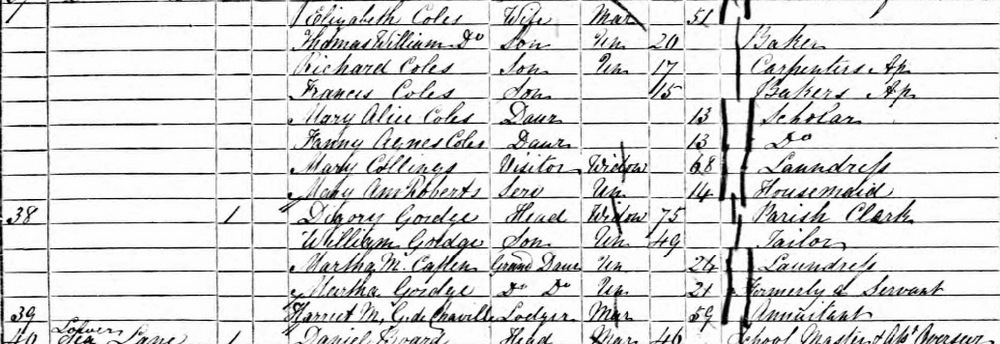 Elizabeth Coles Wife Mar 51
Thomas William Do Son Un 20 Baker
Richard Coles Son Un 17 Carpenters Ap
Francis Coles Son 15 Bakers Ap
Mary Alice Coles Daur 13 Scholar
Fanny Agnes Coles Daur 13 Do
Mary Collings Visitor Widow 68 Laundress
Mary Ann Roberts Serv Un 14 Housemaid
38 1 Digory Gordge Head Widow 75 Parish Clark
William Goldge Son Un 49 Tailor
Martha M. Grand Daur Un Laundress
Martha Gordge Do Do Un 21 Formerly a Servant
39 Harriet M. Lodger Mar 59 Annuitant
40 Lower Sea Lane 1 Daniel Head Mar 46 School Master & Overseer